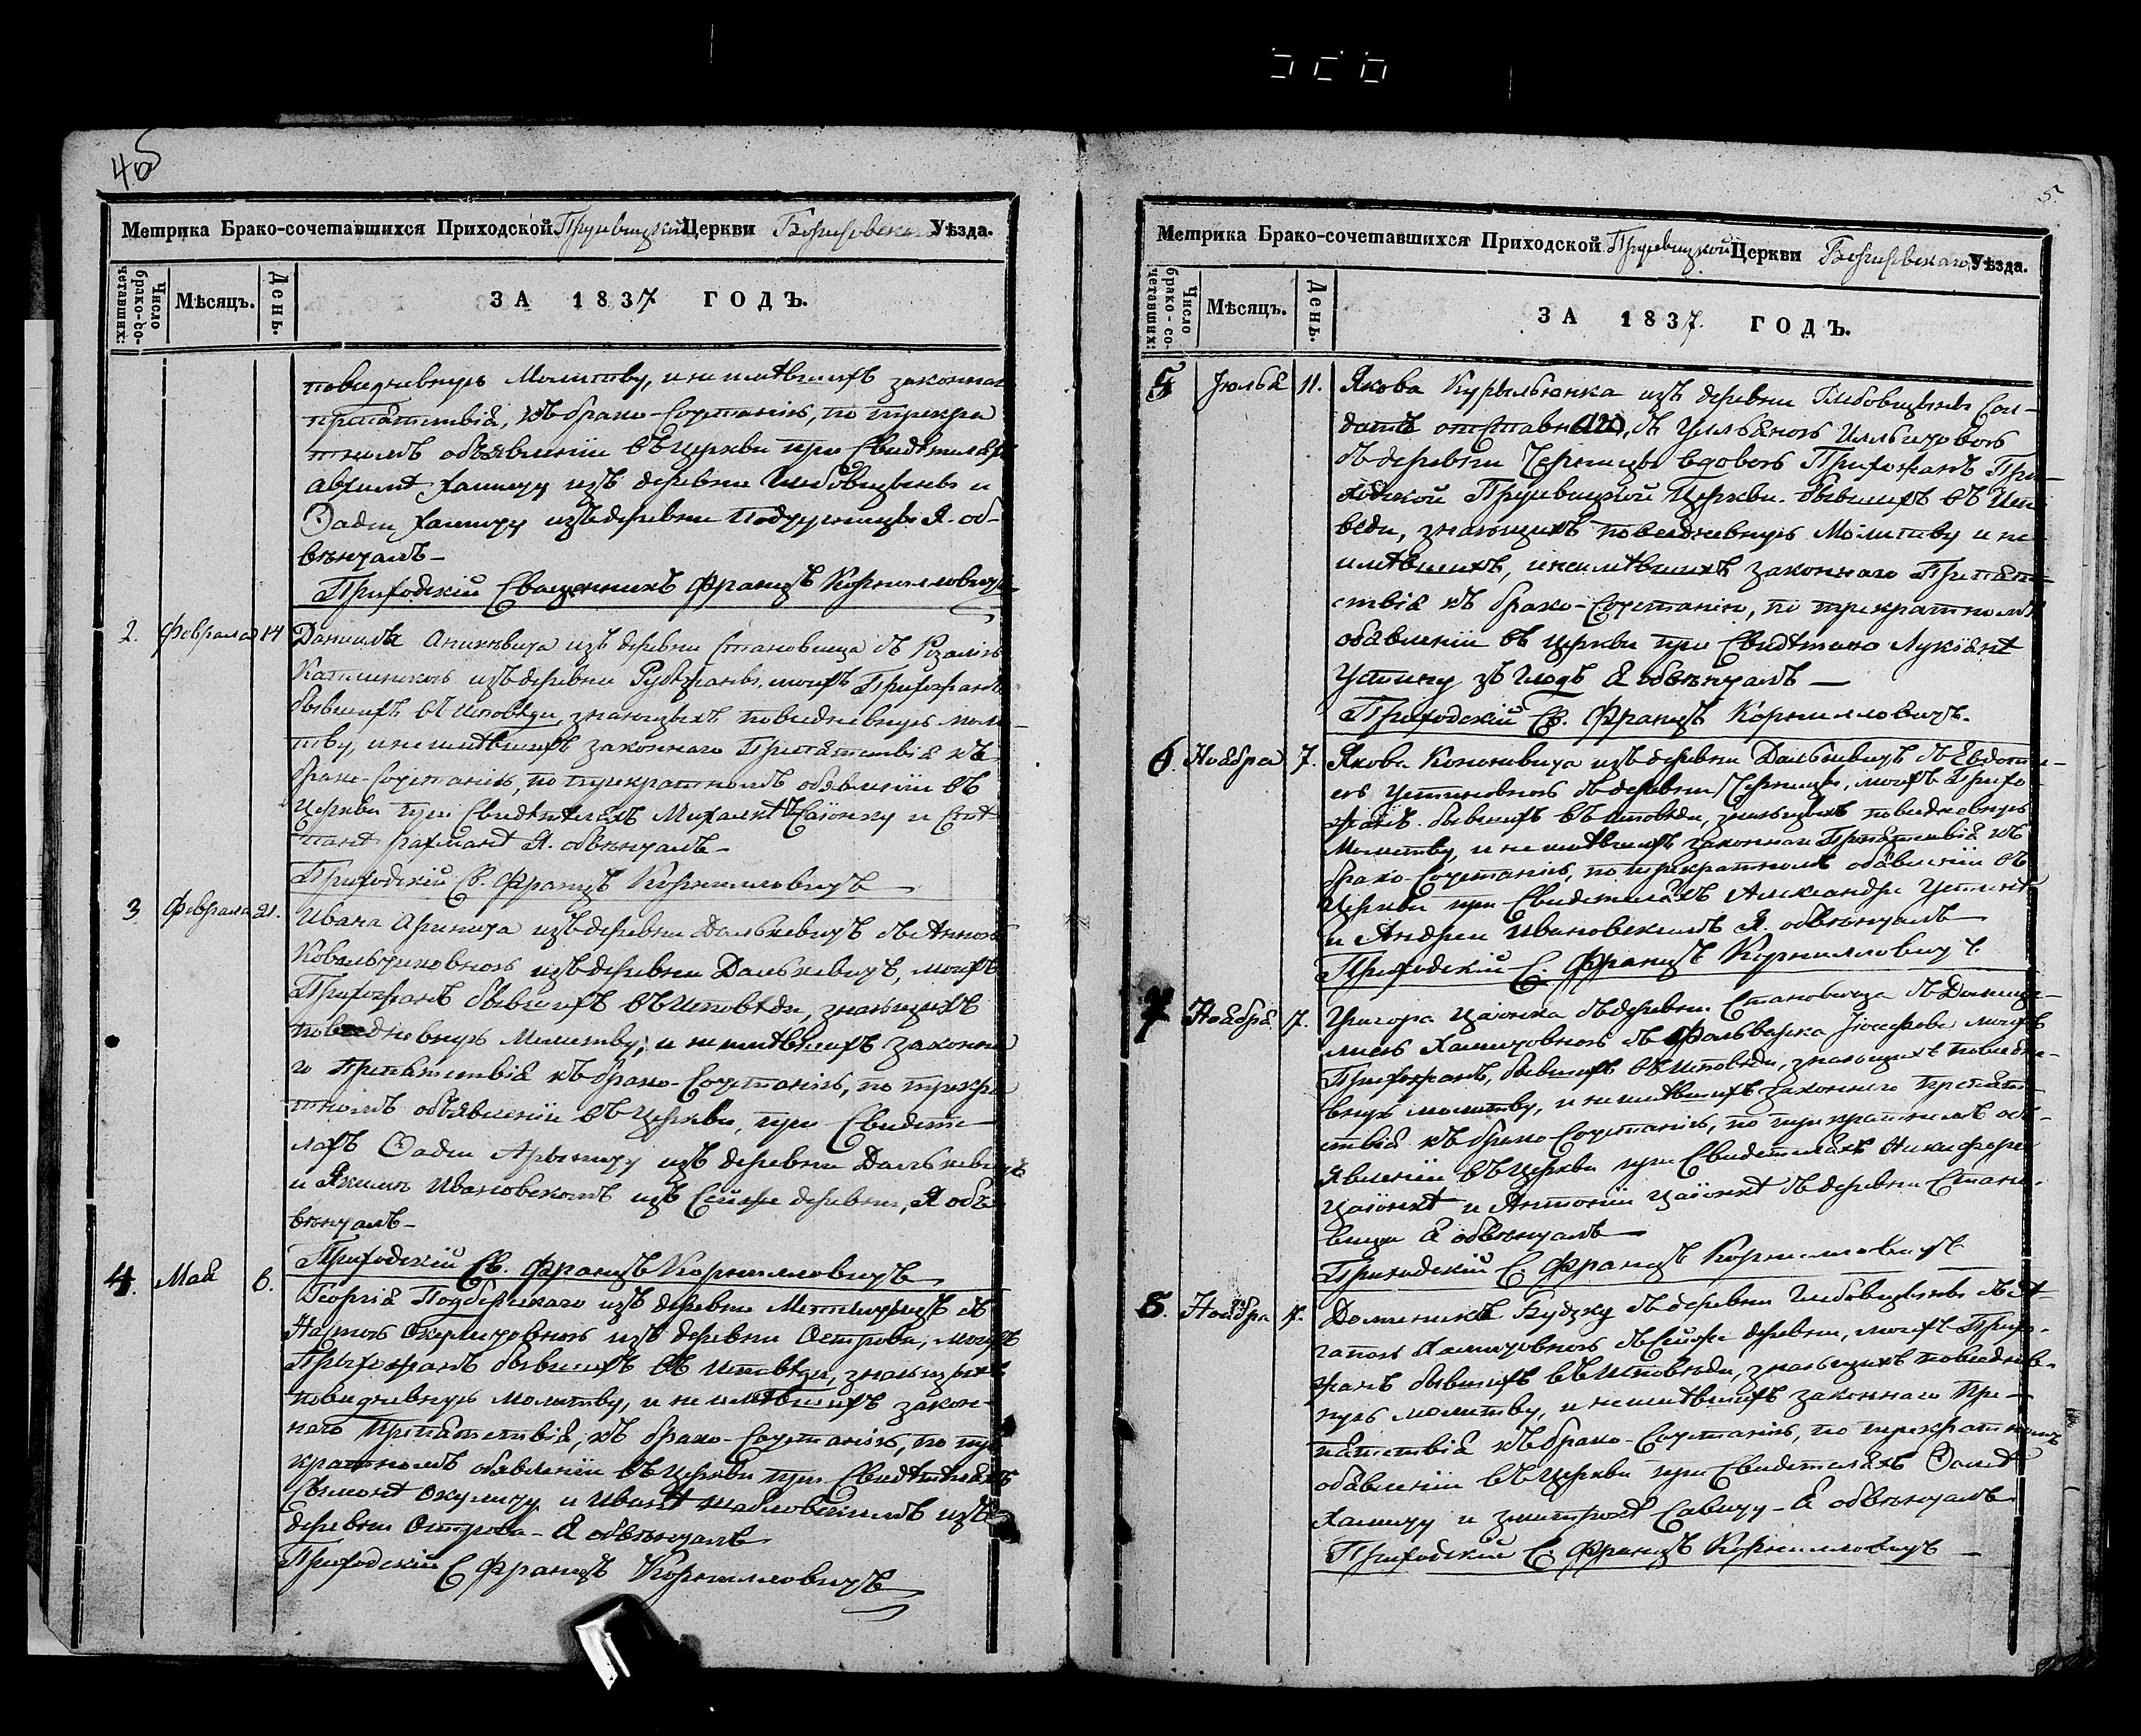 4об
Метрика Брако-сочетавшихся Приходской Прусевицкой Церкви Борисовскаго Уѣзда.
Число брако-со-четавшихся:
Мѣсяцъ.
День.
ЗА 1837 ГОДЪ.
повседневную Молитву, и не имѣвшихъ законнаго
препятствія, къ брако-Сочетанію, по трекра
тномъ объявленіи въ церкви при Свидѣтеляхъ
Хамицу изъ деревни Глебовщины и
Фадеи Хамицу изъ деревни Я. об-
вѣнчалъ-
Приходскій Священникъ Францъ Корниловичъ
2. Февраля 14 Данила изъ деревни Становища съ Розалію
изъ деревни моихъ Прихожанъ
бывшихъ въ исповѣди, знающыхъ повседневную моли-
тву, и не имѣвшихъ законнаго Препятствія къ
брако-Сочетанію, по трекратномъ обявленіи въ
Церкви при Свидѣтеляхъ Михаилѣ Цаюнку и Сте
панѣ Рахманѣ Я. обвѣнчалъ-
Приходскій Св. Францъ Корниловичъ
3. Февраля 21. Ивана изъ деревни Далькевичъ съ Анною
Ковальчиковною изъ деревни Далькевичъ, моихъ
Прихожанъ бывшихъ въ Исповѣди, знающихъ
повседневную Молитву, и не имѣвшихъ законна
го Препятствія къ брако-Сочетанію, по трекра
тномъ объявленіи въ Церкви, при Свидѣте
ляхъ Фадеи изъ деревни Далькевичъ
и Якимъ Ивановскомъ изъ Сейже деревни, Я объ
вѣнчалъ-
Приходскій Св. Францъ Корниловичъ
4. Май 6. Георгія Подберскаго изъ деревни съ
Окуличовною изъ деревни Острова, моихъ
Прыхожанъ бывшихъ въ исповѣди, знающыхъ
повседневную молитву, и не имѣвшихъ закон-
наго Препятствія, къ брако-Сочетанію, по тре
кратномъ обявленіи въ Церкви при Свидѣтеляхъ
Сымонѣ Окуличу и Иванѣ изъ
деревни Острова- Я обвѣнчалъ
Приходскій С Францъ Корниловичъ
5.
Метрика Брако-сочетавшихся Приходской Прусевицкой Церкви Борисовскаго Уѣзда.
Число брако-со-четавших:
Мѣсяцъ.
День.
ЗА 1837. ГОДЪ.
5 Іюлья 11. Якова изъ деревни Глебовщины Сол-
датъ отставн съ Ульяною
съ деревни Черницы вдовою Прихожанъ При-
ходской Прусевицкой Церкви. бывшихъ въ Испо
веди, знающихъ повседневную Молитву и не
имѣвшихъ, и не имѣвшихъ законнаго Препят-
ствія къ брако-Сочетанію, по трекратномъ
обявленіи въ церкви при Свидѣтело Лукіянѣ
Устину Я обвѣнчалъ —
Приходскій Св. Францъ Корниловичъ.
6. Ноября 7. Якова Кононовича изъ деревни Далькевичъ съ Евдоки-
ею Устиновною съ деревни Черницы, моихъ Прихо-
жанъ. бывшихъ въ исповѣди, знающихъ повседневную
Молитву, и не имѣвшихъ законнаго Препятствія къ
брако-Сочетанію, по трекратномъ обявленіи въ
Церкви при Свидетеляхъ Александре Устинѣ
и Андреи Ивановскимъ Я. обвѣнчалъ
Приходскій С. Францъ Корниловичъ.
7 Ноября 7. Григора Цаюнка съ деревни Становища съ Доми
Хамицовною съ Фольварка Іосефова моихъ
Прихожанъ, бывшихъ въ Исповѣди, знающихъ повседне-
вную молитву, и не имѣвшихъ законнаго препят-
ствія къ брако-Сочетанію, по трекратномъ объ-
явленіи въ Церкви при Свидѣтеляхъ Никифоре
Цаюнкѣ и Антоніи Цаюнкѣ съ деревни Стано-
вища Я обвѣнчалъ
Приходскій С. Францъ Корниловичъ
8. Ноября 7. Доминика Будзку съ деревни Глебовщины съ А-
гапою Хамицовною съ Сейже деревни, моихъ Прихо-
жанъ бывшихъ въ Исповѣди, знающихъ повседнев-
ную молитву, и не имѣвшихъ законнаго Пре-
пятствія къ брако-Сочетанію, по трекратномъ
обявленіи въ Церкви при Свидетеляхъ
Хамицу и Савицу- Я обвѣнчалъ
Приходскій С. Францъ Корниловичъ